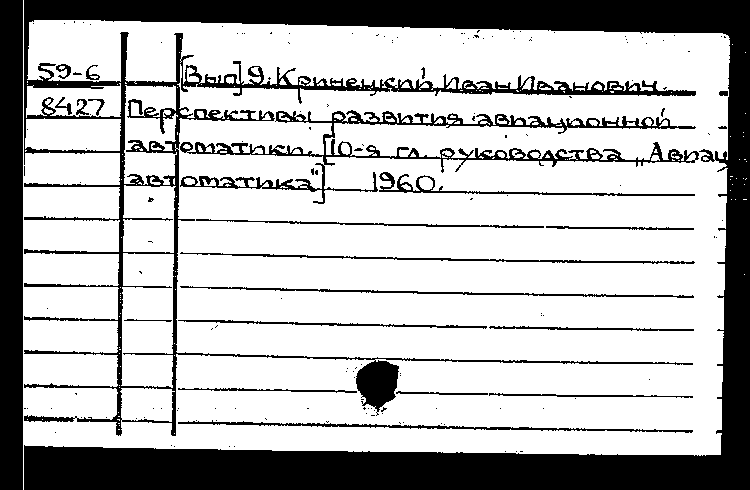 59-6 [Вып] 9. Кринецкий, Иван Иванович.
8427 Перспективы развития авиационной
автоматики. [10-я гл. руководства „Авиац
автоматика"]. 1960.